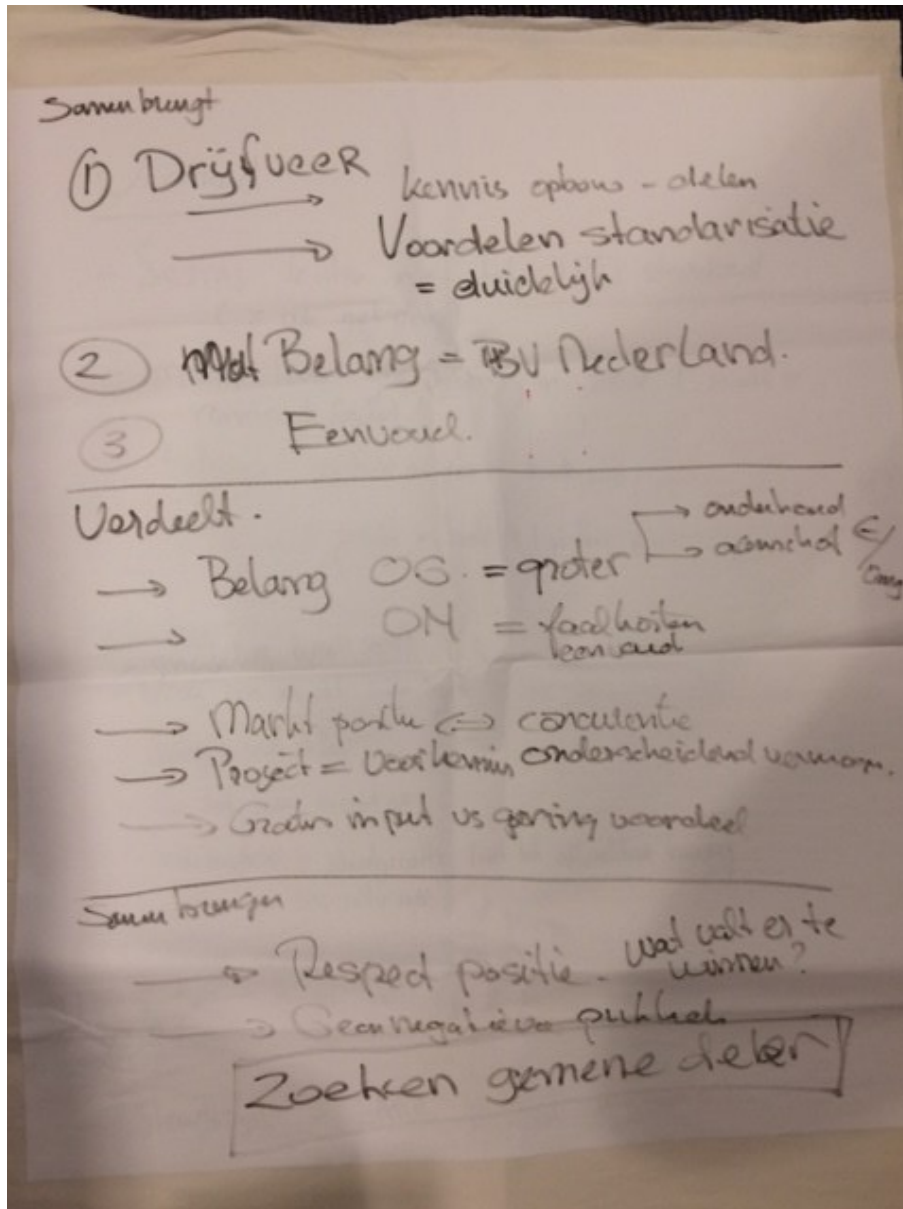 Samen brengt
① Drijfveer
→ kennis opbouw - delen
→ Voordelen standarisatie
= duidelijk
② Belang = BV Nederland.
③ Eenvoud.
Verdeelt.
→ Belang OG. = groter → onderhoud
→
→ ON = faalkosten
eenvoud
→ Markt positie <=> concurentie
→ Project = Voorkennis, onderscheidend vermogen.
→ Groter input vs gering voordeel
Samen brengen
→ Respect positie - wat valt er te
winnen?
→ Geen negatieve
Zoeken gemene deler